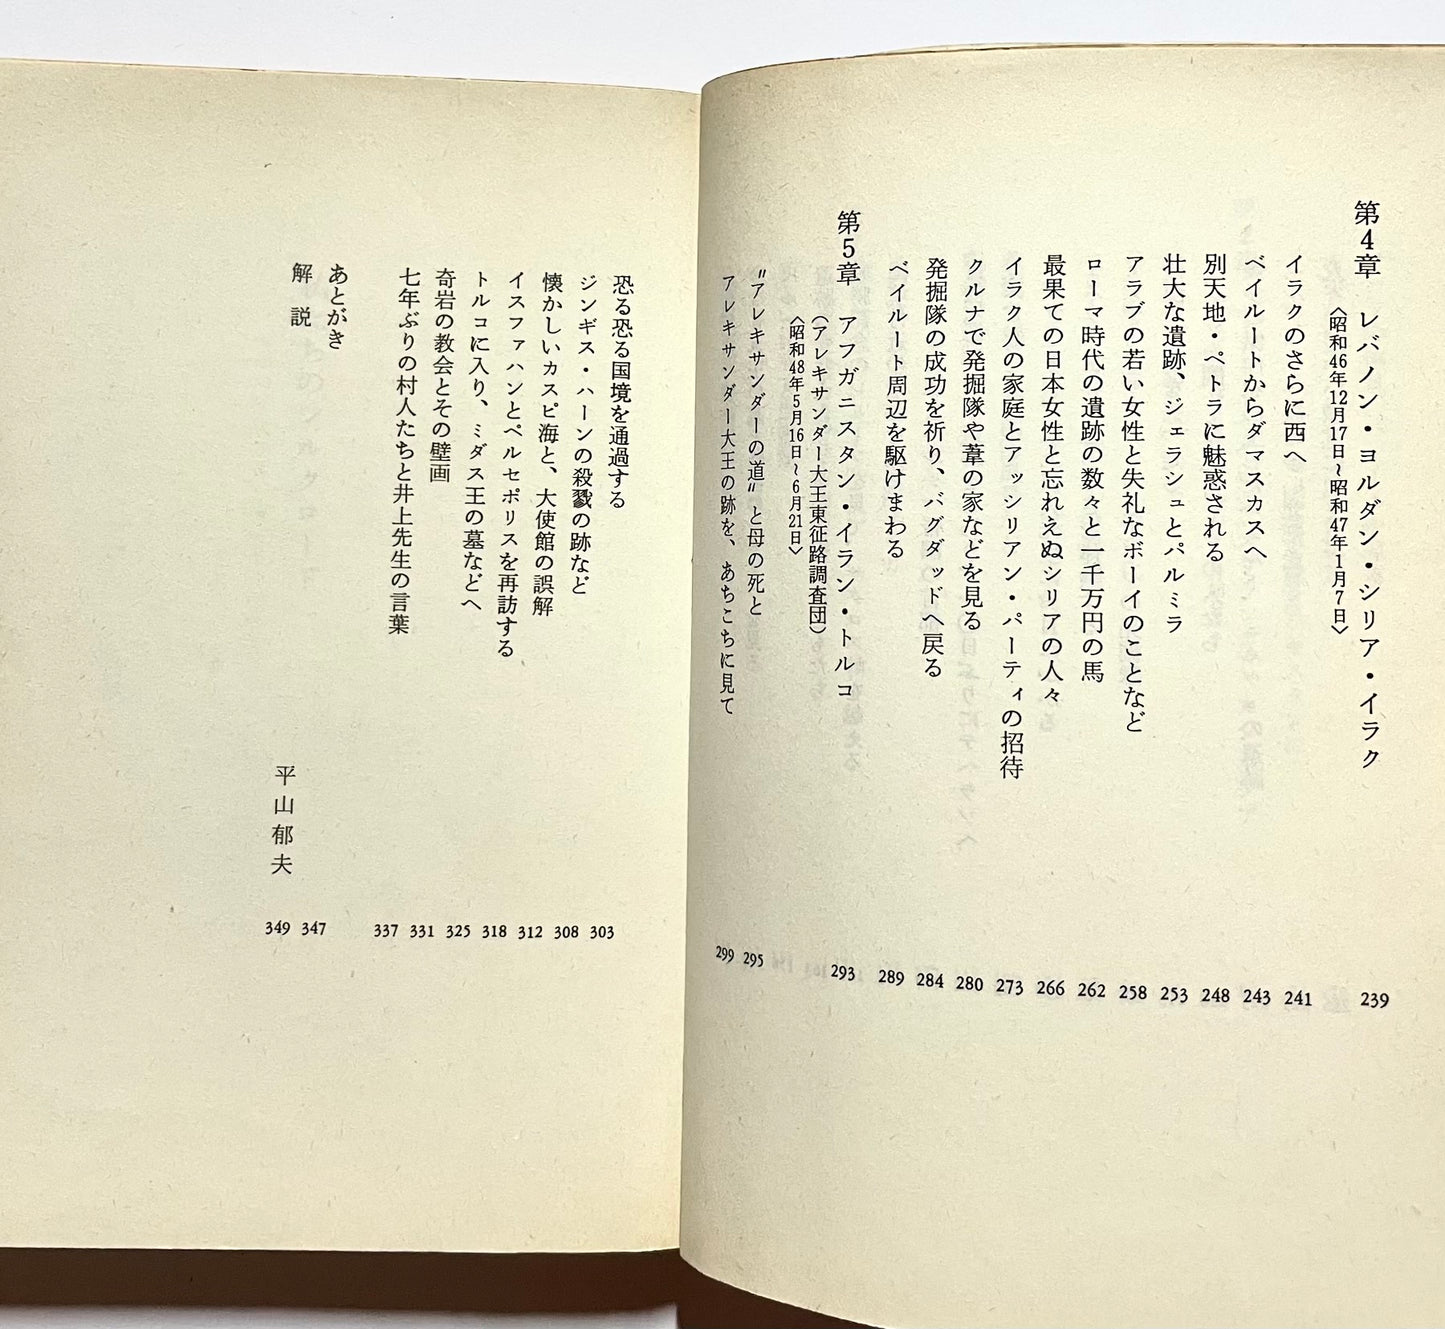 第4章　レバノン・ヨルダン・シリア・イラク　239
〈昭和46年12月17日～昭和47年1月7日〉
イラクのさらに西へ　241
ベイルートからダマスカスへ　243
別天地・ペトラに魅惑される　248
壮大な遺跡、ジェラシュとパルミラ　253
アラブの若い女性と失礼なボーイのことなど　258
ローマ時代の遺跡の数々と一千万円の馬　262
最果ての日本女性と忘れえぬシリアの人々　266
イラク人の家庭とアッシリアン・パーティの招待　273
クルナで発掘隊や葦の家などを見る　280
発掘隊の成功を祈り、バグダッドへ戻る　284
ベイルート周辺を駆けまわる　289
第5章　アフガニスタン・イラン・トルコ　293
（アレキサンダー大王東征路調査団）
〈昭和48年5月16日～6月21日〉
〝アレキサンダーの道〟と母の死と　295
アレキサンダー大王の跡を、あちこちに見て　299
恐る恐る国境を通過する　303
ジンギス・ハーンの殺戮の跡など　308
懐かしいカスピ海と、大使館の誤解　312
イスファハンとペルセポリスを再訪する　318
トルコに入り、ミダス王の墓などへ　325
奇岩の教会とその壁画　331
七年ぶりの村人たちと井上先生の言葉　337
あとがき　347
解説　平山郁夫　349